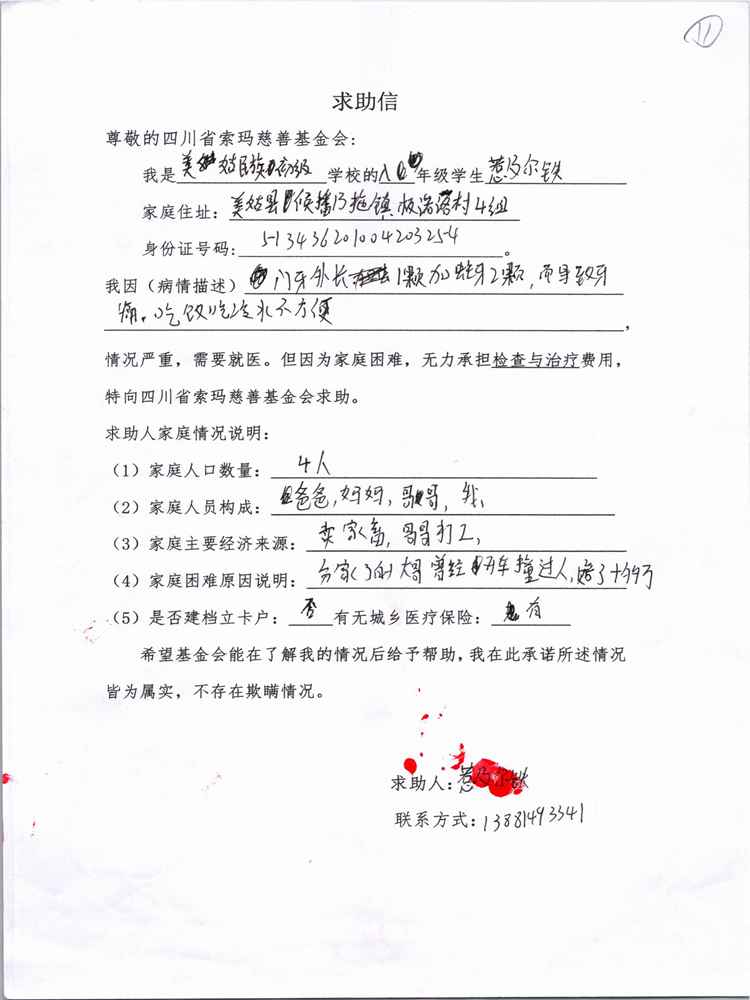 11
求助信
尊敬的四川省索玛慈善基金会：
我是美姑民族高级学校的八年级学生惹乃尔铁
家庭住址：美姑县侯播乃拖镇 村4组
身份证号码：513436201004203254。
我因（病情描述）门牙外长1颗加蛀牙2颗，而导致牙
痛。吃饭吃冷水不方便，
情况严重，需要就医。但因为家庭困难，无力承担检查与治疗费用，
特向四川省索玛慈善基金会求助。
求助人家庭情况说明：
（1）家庭人口数量：4人
（2）家庭人员构成：爸爸，妈妈，哥哥，我，
（3）家庭主要经济来源：卖家畜，哥哥打工，
（4）家庭困难原因说明：分家了的大哥曾经开车撞过人，赔了十 万
（5）是否建档立卡户：否 有无城乡医疗保险：有
希望基金会能在了解我的情况后给予帮助，我在此承诺所述情况
皆为属实，不存在欺瞒情况。
求助人：惹乃尔铁
联系方式：13881493341